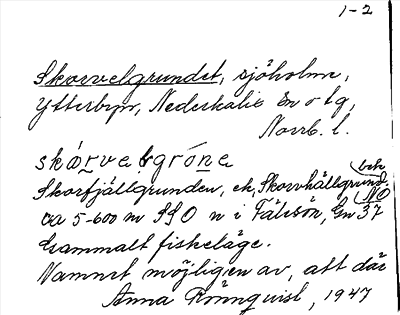 1-2
Skorvelgrundet, sjöholme,
Ytterbyn, Nederkalix sn o tg,
Norrb. l.
skǫrvelgrǫne
bch
Skorfjällgrunden, ek, Skorvhällgrund.
NO
ca 5-600 m SSO n i Fårsön, Gn 37
Gammalt fiskeläge.
Namnet möjligen av, att där
Anna Rönnqvist, 1947